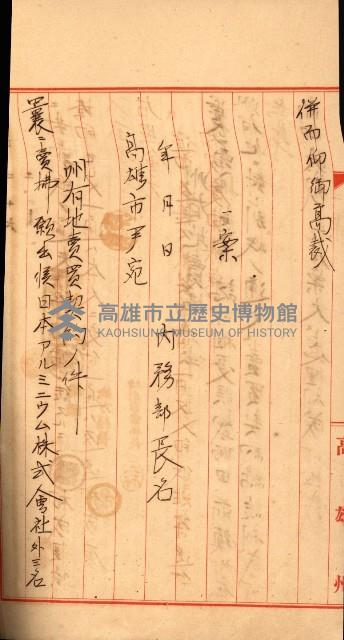 併而仰御高裁
一案
年月日 內務部長名
高雄市尹宛
州有地賣買契約ノ件
曩ニ賣拂願出候日本アルミニウム株式會社外三名
高雄州
高雄市立歷史博物館
KAOHSIUNG MUSEUM OF HISTORY